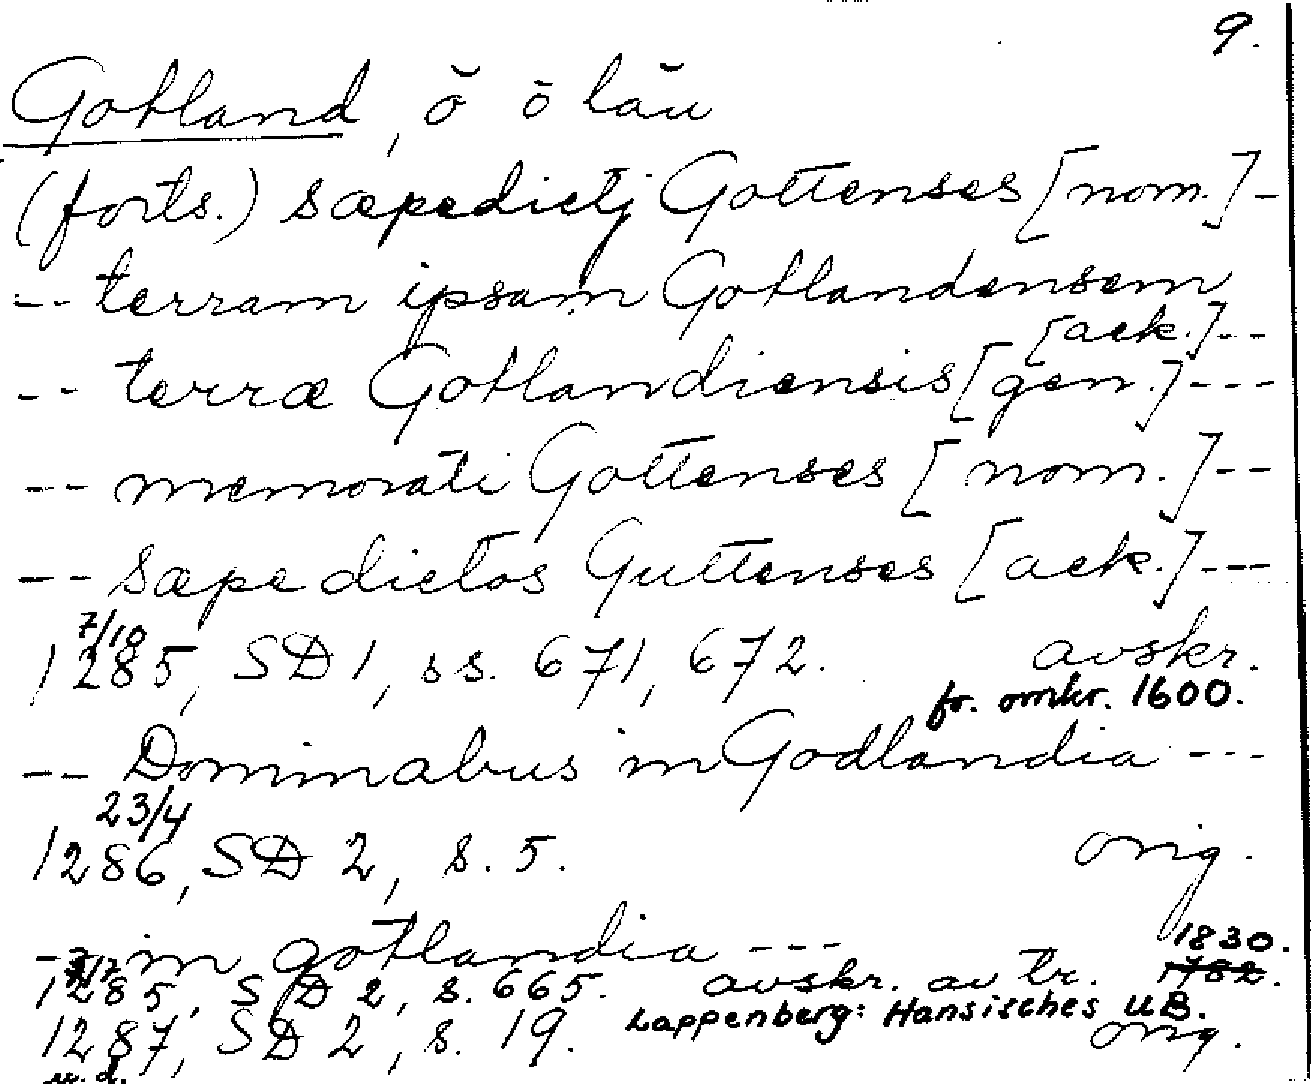 9.
Gotland, ö ö län
(forts.) sæpedictj Gottenses [nom.]-
-- terram ipsam Gotlandensem
[ack.]--
-- terræ Gotlandiensis [gen.]---
-- memorati Gottenses [nom.]--
-- sæpe dictos Guttenses [ack.]---
7/10
1285, SD 1, ss. 671, 672. avskr.
fr. omkr. 1600.
-- Dominabus in Godlandia ---
23/4
1286, SD 2, s. 5. orig.
- in gotlandia ---
1830.
1285, SD 2, s. 665. avskr. av tr. 1782.
Lappenberg: Hansisches UB.
1287, SD 2, s. 19. orig.
u. d.